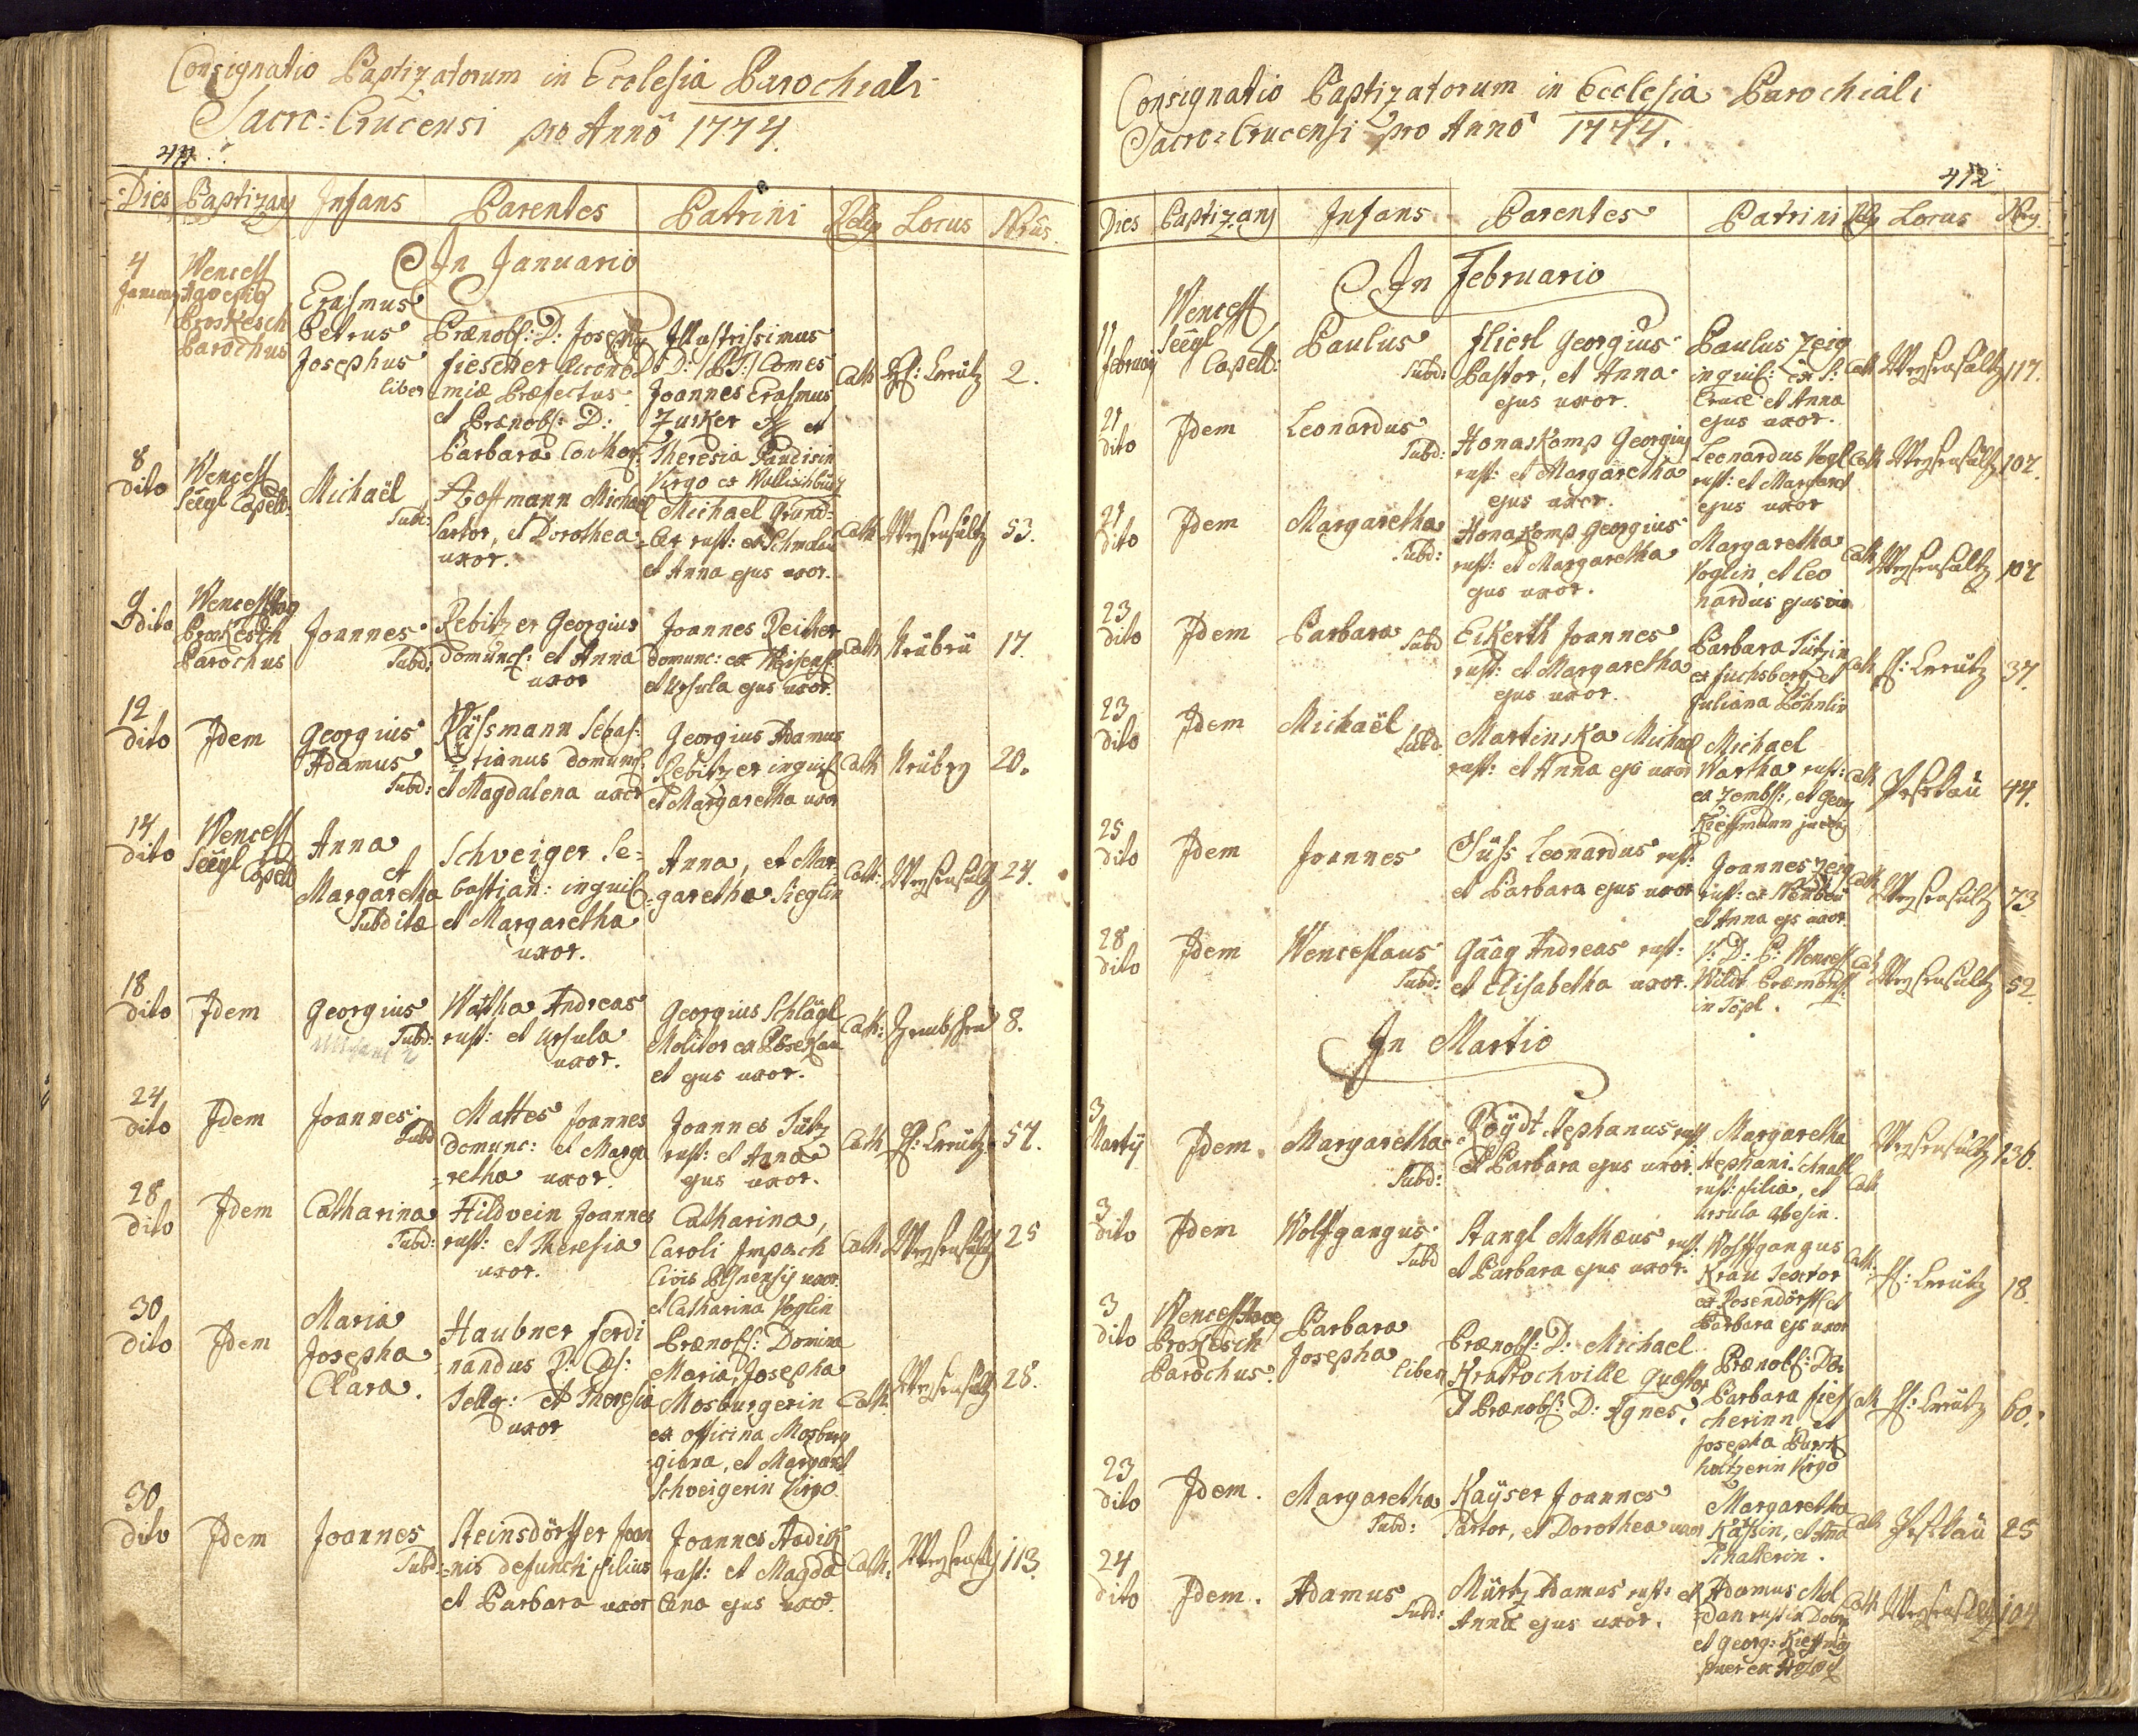 Consignatio Baptizatorum in Ecclesia Parochiali
Sacro: Crucensi pro Anno 1774.
411
Dies Baptizans Infans Parentes Patrini Relig Locus Nrus
In Januario
4 Wencesl
January
Proskesch
Parochus
Erasmus
Petrus
Josephus
liber
Prænobl: D: Joseph
fiescher œcono
miæ Præfectus
et Prænobl: D:
Barbara
Illustrissimus
D: D: Comes
Joannes Erasmus
et
Theresia
Virgo ex
Cath H: Creutz 2.
8
dito
Wencesl
Seegl Capell:
Michaël
Subd:
Hoffmann Michael
Sartor, et Dorothea
uxor.
Michael Grund=
ler rust: ex
et Anna ejus uxor.
Cath Weysensultz 53.
9
dito
Wencesl
Proskesch
Parochus
Joannes
Subd:
Rebitzer Georgius
domuncl: et Anna
uxor
Joannes Reither
domunc: ex
et Ursula ejus uxor.
Cath 17.
12
dito
Idem
Georgius
Adamus
Subd:
Kässmann Sebas:
tianus domuncl
et Magdalena uxor
Georgius Adamus
Rebitzer inquil
et Margaretha uxor
Cath 20.
14
dito
Wencesl
Seegl Capell
Anna
et
Margaretha
Subditæ
Schveiger Se=
bastian: inquil
et Margaretha
uxor.
Anna, et Mar
garetha Sieglin
Cath: Weysensultz 24.
18
dito
Idem
Georgius
Subd:
Wartha Andreas
rust: et Ursula
uxor.
Georgius Schlägl
Molitor ex
et ejus uxor.
Cath: 8.
24
dito
Idem
Joannes
Subd
Mattes Joannes
domunc: et Marga
=retha uxor.
Joannes Tützl
rust: et Anna
ejus uxor.
Cath H: Creutz 57.
28
dito
Idem
Catharina
Subd:
Hildvein Joannes
rust: et Theresia
uxor.
Catharina,
Caroli Impach
Civis Pilsnensis uxor
et Catharina Voglin
Cath Weysensultz 25
30
dito
Idem
Maria
Josepha
Clara.
Haubner ferdi
nandus
et Theresia
uxor
Prænobl: Domina
Maria Josepha
Mosburgerin
ex officina Mosburg
giana, et Margareth
Schveigerin Virgo
Cath: Weysensultz 28.
30
dito
Idem
Joannes
Subd:
Steinsdörffer Joan
nis defuncti filius
et Barbara uxor
Joannes
rust: et Magda
lena ejus uxor.
Cath: Weysensultz 113.
Consignatio Baptizatorum in Ecclesia Parochiali
Sacro=Crucensi pro Anno 1774.
412
Dies Baptizans Infans Parentes Patrini Relig Locus
In Februario
11
february
Wencesl
Seegl
Capell:
Paulus
Subd:
flierl Georgius
Pastor, et Anna
ejus uxor.
Paulus Zeig
inquil: ex S:
Cruce et Anna
ejus uxor.
Cath Weysensultz 117.
21
dito
Idem
Leonardus
Subd:
Honaskomp Georgius
rust: et Margaretha
ejus uxor.
Leonardus Vogl
rust: et Margareth
ejus uxor
Cath Weysensultz 107.
21
dito
Idem
Margaretha
Subd:
Honaskomp Georgius
rust: et Margaretha
ejus uxor.
Margaretha
Voglin, et Leo
nardus ejus vir
Cath Weysensultz 107
23
dito
Idem
Barbara
Subd
Eckerth Joannes
rust: et Margaretha
ejus uxor.
Barbara Tützlin
ex fuchsberg, et
Juliana Böhnlin
Cath H: Creutz 37.
23
dito
Idem
Michaël
Subd
Martinska Michael
rust: et Anna ejus uxor
Michael
Wartha rust:
et Georg
Cath 44.
25
dito
Idem
Joannes
Süss Leonardus rust:
et Barbara ejus uxor
Joannes Zeig
rust: ex
et Anna ejs uxor
Cath Weysensultz 73
28
dito
Idem
Wenceslaus
Subd:
Gäag Andreas rust:
et Elisabetha uxor.
V: D: P: Wencesl
Wildt Præmonst:
in Töpl.
Cath Weysensultz 52
In Martio
3
Martij
Idem.
Margaretha
Subd:
Stephanus rust
et Barbara ejus uxor.
Margaretha
Stephani Schnabl
rust: filia, et
Ursula
Cath Weysensultz 136.
3
dito
Idem
Wolffgangus
Subd
Stangl Mathæus rust:
et Barbara ejus uxor.
Wolffgangus
Krau Textor
ex Rosendörff et
Barbara ejs uxor
Cath. H: Creutz 18.
3
dito
Wencesl
Proskesch
Parochus.
Barbara
Josepha
liber
Prænobl: D: Michael
Krattochville Quæstor
et Prænobl: D: Agnes.
Prænobl: D:
Barbara fies
cherinn et
Josepha Burk
holtzerin Virgo
Cath H: Creutz 60.
23
dito
Idem.
Margaretha
Subd:
Kaÿser Joannes
Sartor, et Dorothea uxor
Margaretha
Käsin, et Anna
Schallerin.
Cath 25
24
dito
Idem.
Adamus
Subd:
Mürtz Adamus rust: et
Anna ejus uxor.
Adamus Mol
dan rust:
et Georg:
puer ex
Cath Weysensultz 104